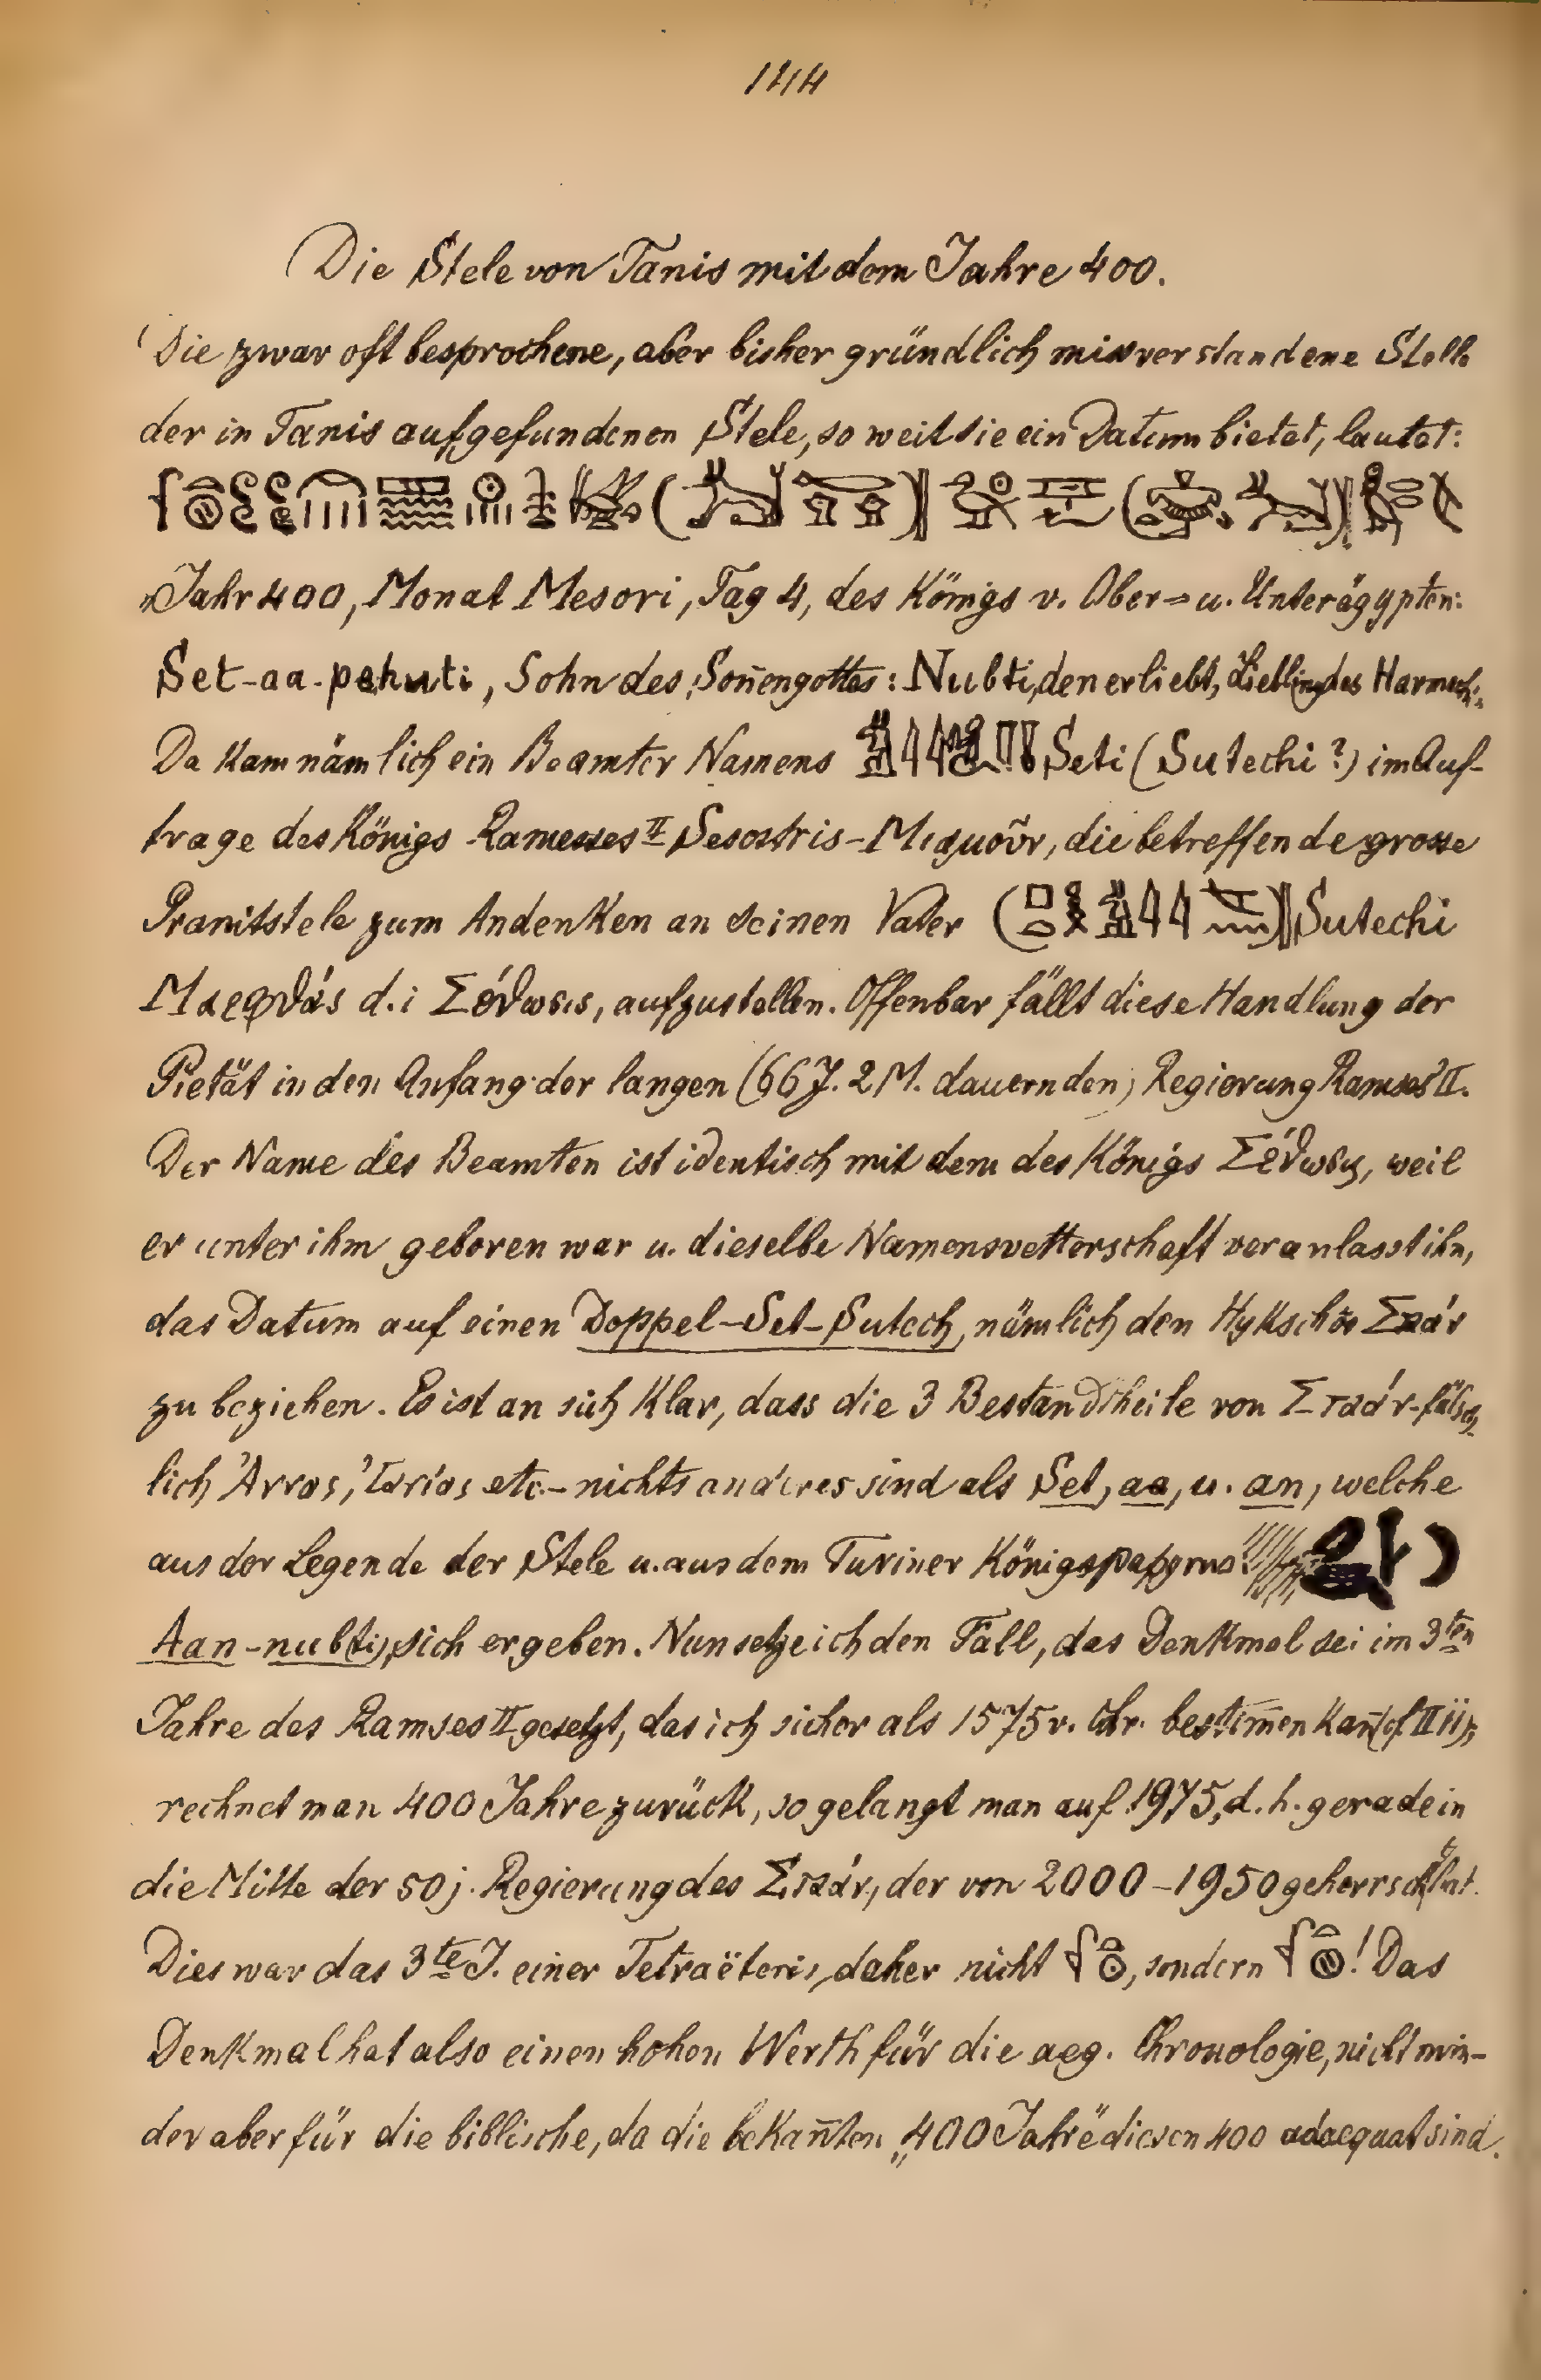 144
Die Stele von Tanis mit dem Jahre 400.
Die zwar oft besprochene, aber bisher gründlich misverstandene Stelle
der in Tanis aufgefundenen Stele, so weit sie ein Datum bietet, lautet:
„Jahr 400, Monat Mesori, Tag 4, des Königs v. Ober= u. Unterägypten:
Set-aa-pehuti, Sohn des Son̄engottes: Nubti, den er liebt, Liebling des Harmach.
Da kam nämlich ein Beamter Namens Seti (Sutechi?) im Auf-
trage des Königs Ramesses II Sesostris-Μιαμοῦν, die betreffende grosse
Granitstele zum Andenken an seinen Vater Sutechi
d. i Σέθωσις, aufzustellen. Offenbar fällt diese Handlung der
Pietät in den Anfang der langen (66 J. 2 M. dauernden) Regierung Ramses II.
Der Name des Beamten ist identisch mit dem des Königs Σέθωσις, weil
er unter ihm geboren war u. dieselbe Namensvetterschaft veranlasst ihn,
das Datum auf einen Doppel-Set-Sutech, nämlich den Hykschôs Σταάν
zu beziehen. Es ist an sich klar, dass die 3 Bestandtheile von Σταάν-fälsch-
lich etc.- nichts anderes sind als Set, aa, u. an, welche
aus der Legende der Stele u. aus dem Turiner Königspapyrus
Aan-nubti, sich ergeben. Nun setze ich den Fall, das Denkmal sei im 3ten
Jahre des Ramses II gesetzt, das ich sicher als 1575 v. Chr. bestim̄en kan̄
rechnet man 400 Jahre zurück, so gelangt man auf 1975, d. h. gerade in
die Mitte der 50j. Regierung des Σταάν, der von 2000-1950 geherrscht hat.
Dies war das 3te J. einer Tetraëteris, daher nicht , sondern ! Das
Denkmal hat also einen hohen Werth für die aeg. Chronologie, nicht min-
der aber für die biblische, da die bekan̄ten „400 Jahre“ diesen 400 adaequat sind.